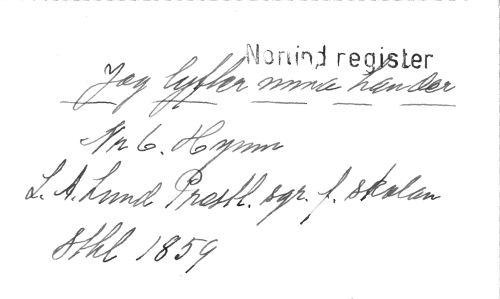 Nonind register
Jag lyfter mina händer
Nr 6. Hymn
L. A. Lund Prestl. sgr. f. skolan
Sthl 1859